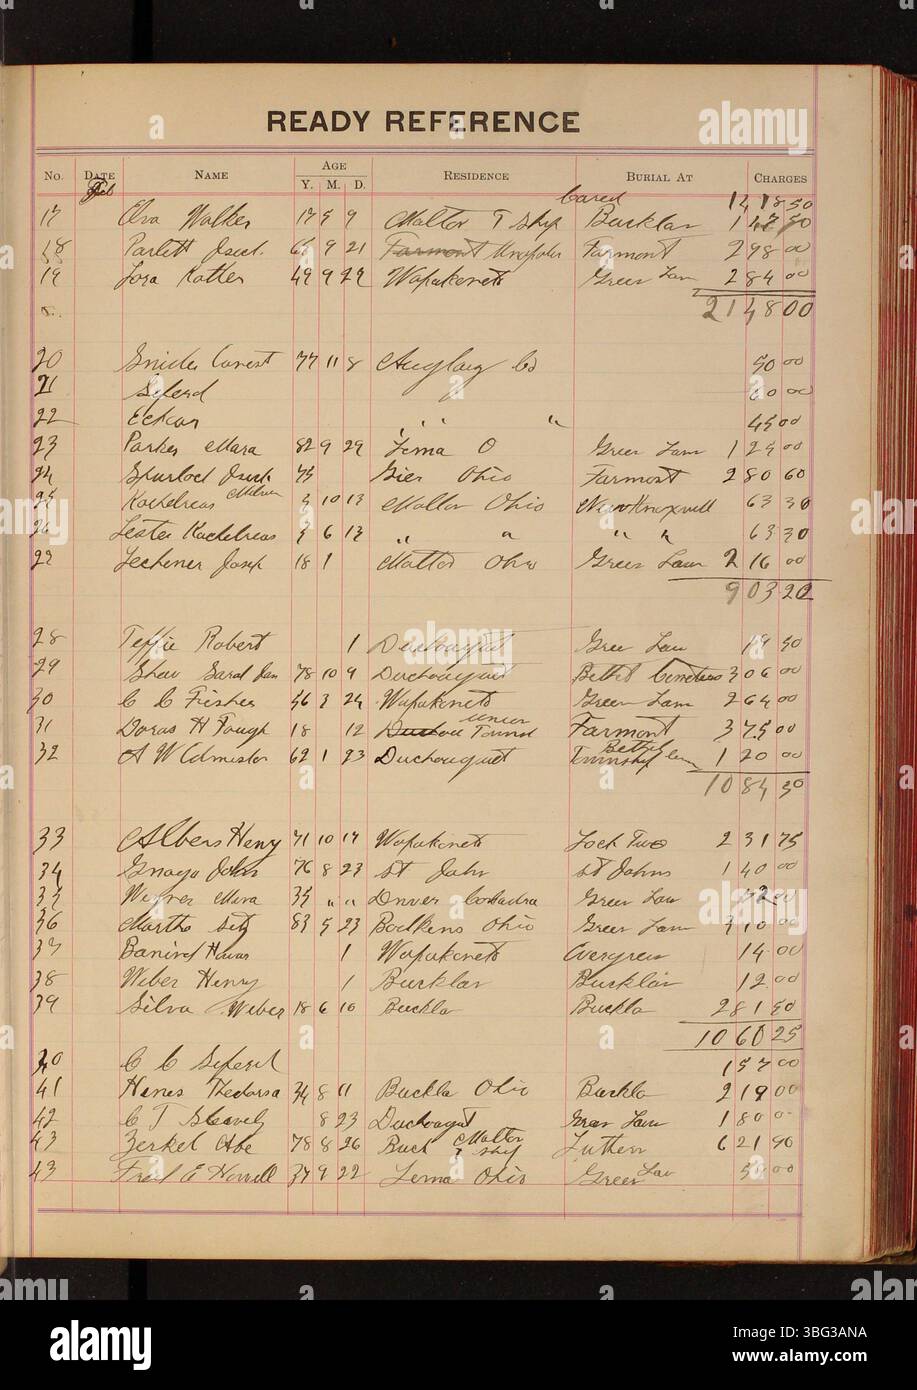 READY REFERENCE
No. DATE NAME AGE Y. M. D. RESIDENCE BURIAL AT CHARGES
Feb
Cared 1418 50
17 Elva Walter 17 5 9 Molton T Ship Bucklan 147 50
18 Parlett Josech 66 9 21 Farmont Uniopolis Farmont 298 00
19 Lora Kotler 49 9 29 Wapakoneta Green Lawn 284 00
2148 00
20 Snider Conest 77 11 8 Auglaiz Co 50 00
21 Seferd 60 00
22 Eckar " " " 45 00
23 Parker Mara 82 9 29 Lima O Green Lawn 125 00
24 Spurlock 75 Ohio Farmont 280 60
25 Kochelreas Melvin 3 10 13 Molton Ohio New Knoxvill 63 30
26 Lester Kochelreas 3 6 13 " " " " 63 30
27 Lechener Joseph 18 1 Molton Ohio Green Lawn 216 00
903 20
28 Teffie Robert 1 Duchouquet Green Lawn 19 50
29 Shaw Sarah Jan 78 10 9 Duchouquet Bethel Cemetery 306 00
30 C C Fisher 56 3 24 Wapakoneta Green Lawn 264 00
31 Doras H Fough 18 12 Union Townd Farmont 375 00
32 A W Edmiston 62 1 23 Duchouquet Bethel Township Cem 120 00
1084 50
33 Albers Henry 71 10 17 Wapakoneta Lock Two 231 75
34 Gnaga John 76 8 23 St John St Johns 140 00
35 Mara 35 " " Dnver Colodra Green Lawn 42 00
36 Martha Sitz 83 5 23 Bodkins Ohio Green Lawn 310 00
37 Banird 1 Wapakoneta Evergreen 14 00
38 Weber Henry 1 Bucklan Bucklan 12 00
39 Silva Weber 18 6 10 Buckla Buckla 281 50
1060 25
40 C C Seferd 157 00
41 Hanes Theodorsa 34 8 11 Buckla Ohio Buckla 219 00
42 C T Snavely 8 23 Duchouquet Green Lawn 180 0-
43 Zerkel Abe 78 8 26 Buck Molton T Ship Luthern 621 90
43 Fred E Horrell 34 9 22 Lima Ohio Green Law 50 00
alamy
Image ID: 3BG3ANA
www.alamy.com